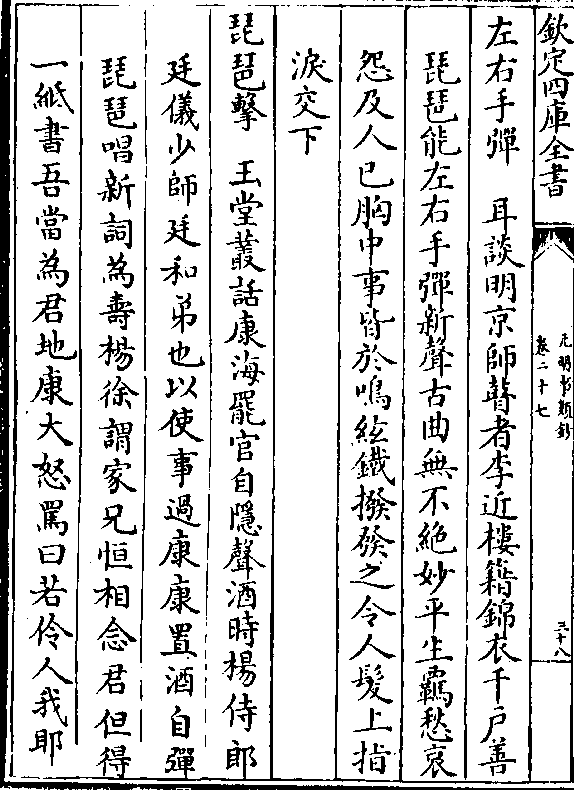 欽定四庫全書
元明事類鈔
卷二十七
三十八
左右手彈　耳談明京師瞽者李近樓籍錦衣千戶善
琵琶能左右手彈新聲古曲無不絶妙平生覊愁哀
怨及人已胸中事皆於鳴絃鐵撥發之令人髮上指
淚交下
琵琶擊　玉堂叢話康海罷官自隱聲酒時楊侍郎
廷儀少師廷和弟也以使事過康康置酒自彈
琵琶唱新詞為壽楊徐謂家兄恒相念君但得
一紙書吾當為君地康大怒罵曰若伶人我耶